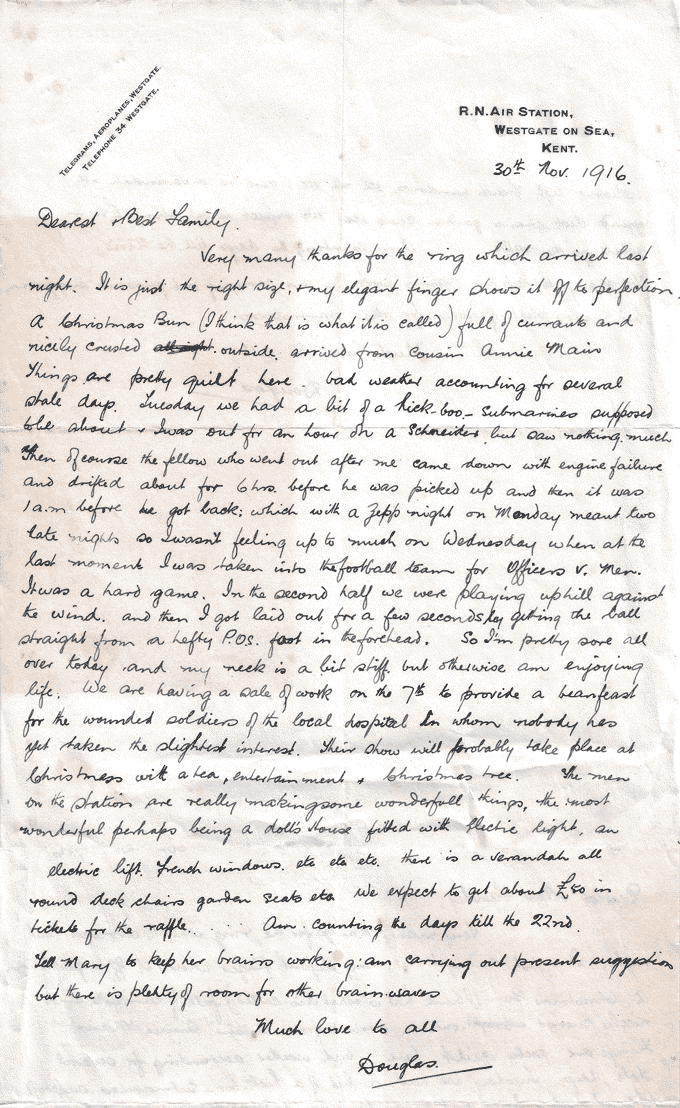 Telegrams, Aeroplanes, Westgate.
Telephone 34 Westgate.
R.N. Air Station,
Westgate on Sea,
Kent.
30th Nov. 1916.
Dearest & Best Family.
Very many thanks for the ring which arrived last
night. It is just the right size, & my elegant finger shows it off to perfection.
A Christmas Bun (I think that is what it is called) full of currants and
nicely crusted outside. arrived from Cousin Annie Main
Things are pretty quiit here. bad weather accounting for several
stale days. Tuesday we had a bit of a kick-boo - Submarines supposed
to be about & I was out for an hour on a Schneider, but saw nothing much
Then of course the fellow who went out after me came down with engine failure
and drifted about for 6 hrs. before he was picked up and then it was
1 a.m before he got back; which with a Zepp night on Monday meant two
late nights so I wasn't feeling up to much on Wednesday when at the
last moment I was taken into the football team for Officers v. Men.
It was a hard game. In the second half we were playing uphill against
the wind. and then I got laid out for a few seconds by getting the ball
straight from a hefty P.O's. foot in the forehead. So I'm pretty sore all
over today and my neck is a bit stiff but otherwise am enjoying
life. We are having a sale of work on the 7th to provide a beanfeast
for the wounded soldiers of the local hospital in whom nobody has
yet taken the slightest interest. Their show will probably take place at
Christmas with a tea, entertainment & Christmas tree. The men
on the station are really making some wonderfull things, the most
wonderful perhaps being a doll's House fitted with Electric light, an
electric lift. French windows. etc etc etc. there is a verandah all
round deck chairs garden seats etc We expect to get about £50 in
tickets for the raffle. . . . . . Am counting the days till the 22nd.
Tell Mary to keep her brains working: am carrying out present suggestion
but there is plenty of room for other brain waves
Much love to all
Douglas.